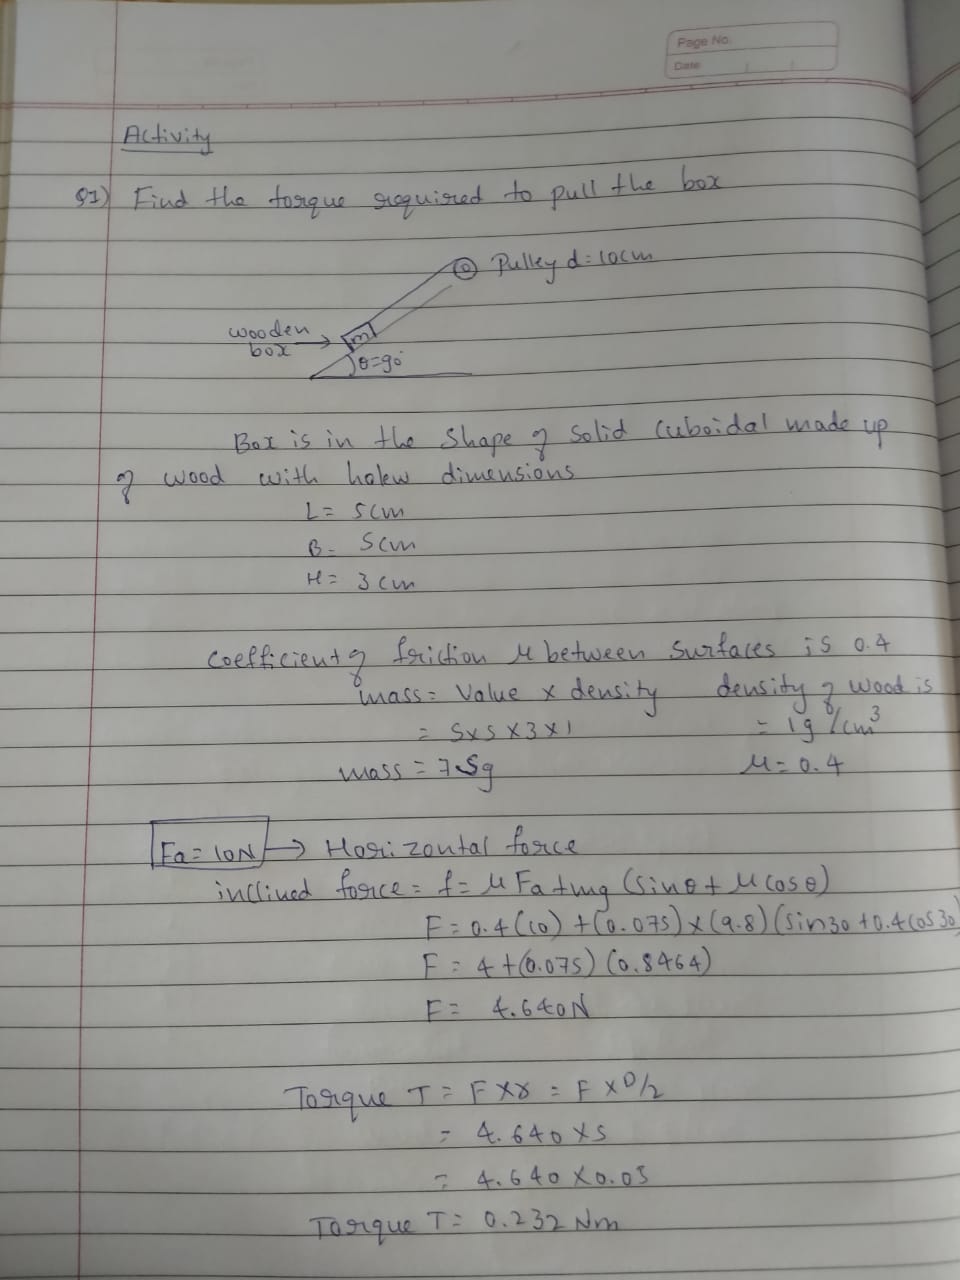 Page No.
Date
Activity
Q1) Find the torque required to pull the box
Pulley d=10cm
wooden
box
m
θ=90°
Box is in the shape of solid cuboidal made up
of wood with halew dimensions
L= 5cm
B= 5cm
H= 3cm
coefficient of friction μ between surfaces is 0.4
mass= Value x density density of wood is
= 5x5x3x1 = 1g/cm³
mass = 75g μ=0.4
Fa=10N → Horizontal force
inclined force= f= μFa+mg (sinθ+μcosθ)
F=0.4(10)+(0.075)x(9.8)(sin30+0.4cos30)
F= 4+(0.075)(0.8464)
F= 4.640N
Torque T= Fxr = FxD/2
= 4.640x5
= 4.640x0.05
Torque T= 0.232 Nm